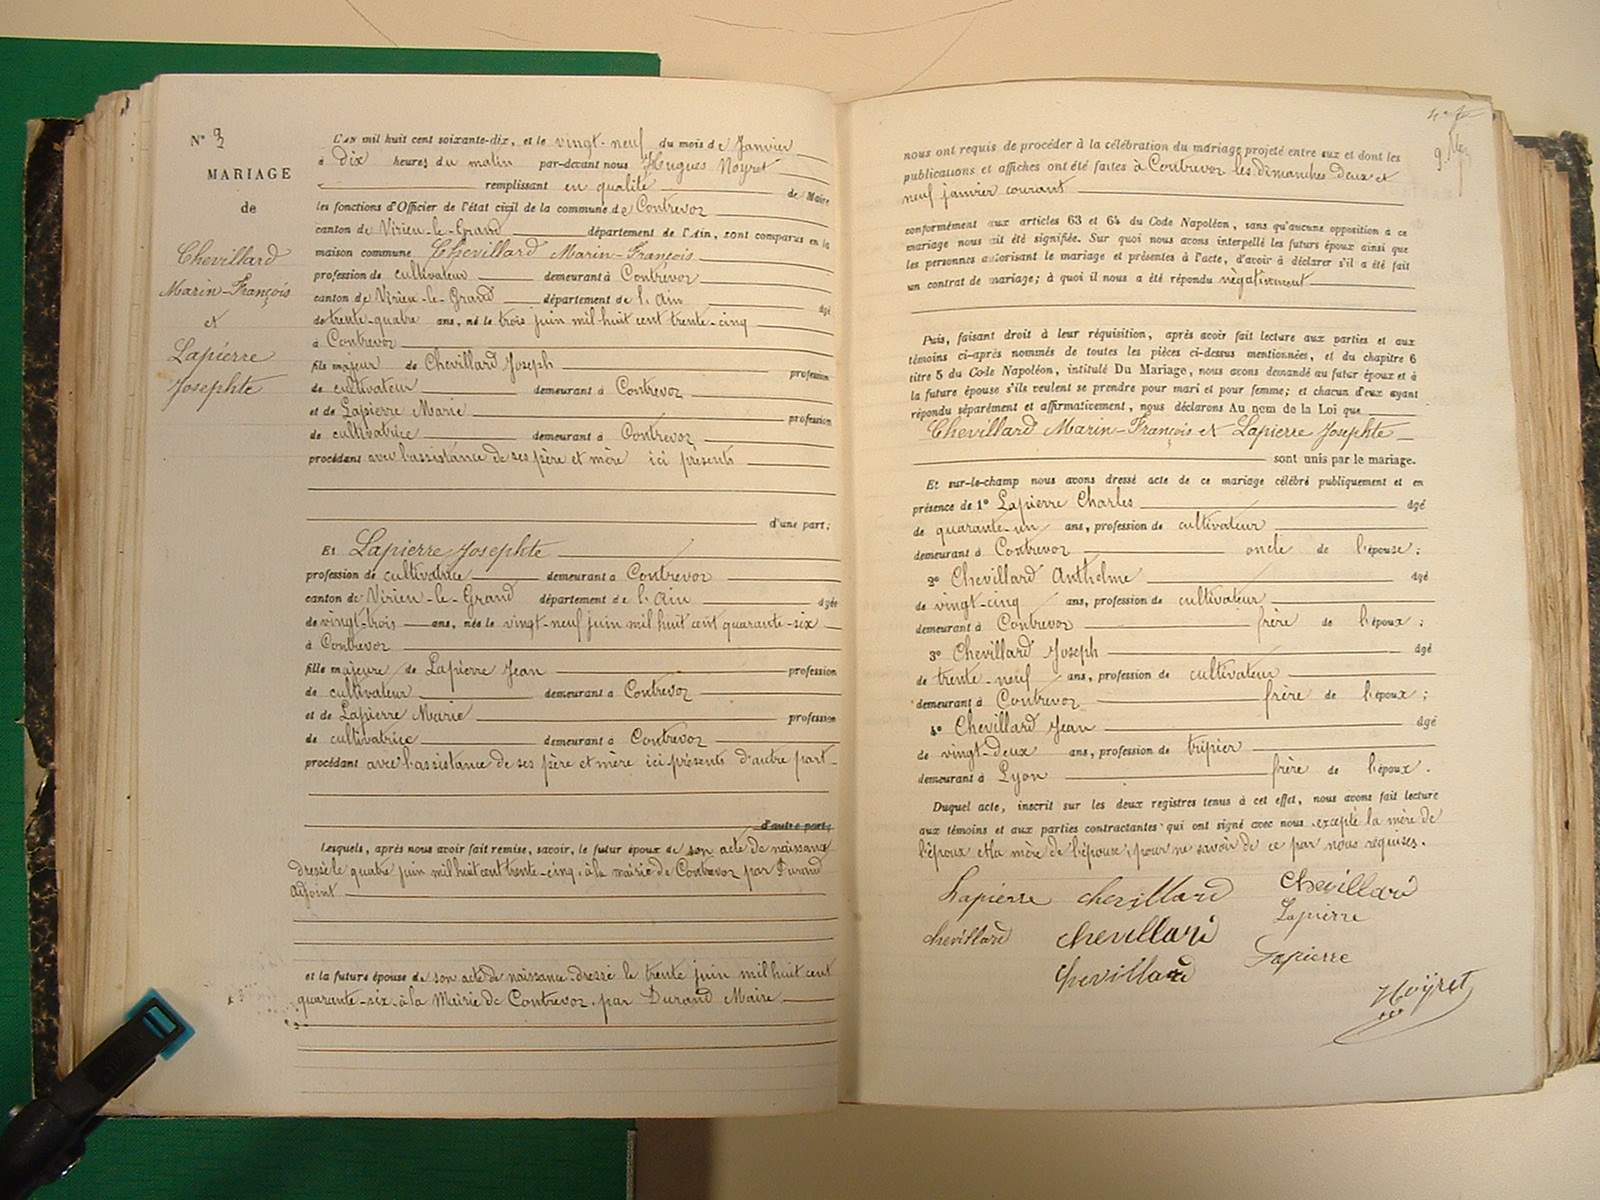 N° 2
MARIAGE
de
Chevillard
Marin-François
et
Lapierre
Josephte
L'AN mil huit cent soixante-dix, et le vingt-neuf du mois de Janvier
à dix heures du matin par-devant nous Hugues Noyret
remplissant en qualité de Maire
les fonctions d'Officier de l'état civil de la commune de Contrevoz
canton de Virieu-le-Grand département de l'Ain, sont comparus en la
maison commune Chevillard Marin-François
profession de cultivateur demeurant à Contrevoz
canton de Virieu-le-Grand département de l'Ain âgé
de trente-quatre ans, né le trois juin mil huit cent trente-cinq
à Contrevoz
fils majeur de Chevillard Joseph profession
de cultivateur demeurant à Contrevoz
et de Lapierre Marie profession
de cultivatrice demeurant à Contrevoz
procédant avec l'assistance de ses père et mère ici présents
d'une part;
Et Lapierre Josephte
profession de cultivatrice demeurant à Contrevoz
canton de Virieu-le-Grand département de l'Ain âgée
de vingt-trois ans, née le vingt-neuf juin mil huit cent quarante-six
à Contrevoz
fille majeure de Lapierre Jean profession
de cultivateur demeurant à Contrevoz
et de Lapierre Marie profession
de cultivatrice demeurant à Contrevoz
procédant avec l'assistance de ses père et mère ici présents d'autre part
d'autre part;
Lesquels, après nous avoir fait remise, savoir, le futur époux de son acte de naissance
dressé le quatre juin mil huit cent trente-cinq, à la mairie de Contrevoz par Durand
Adjoint
et la future épouse de son acte de naissance dressé le trente juin mil huit cent
quarante-six à la Mairie de Contrevoz, par Durand Maire
nous ont requis de procéder à la célébration du mariage projeté entre eux et dont les
publications et affiches ont été faites à Contrevoz les dimanches deux et
neuf janvier courant
conformément aux articles 63 et 64 du Code Napoléon, sans qu'aucune opposition à ce
mariage nous ait été signifiée. Sur quoi nous avons interpellé les futurs époux ainsi que
les personnes autorisant le mariage et présentes à l'acte, d'avoir à déclarer s'il a été fait
un contrat de mariage; à quoi il nous a été répondu négativement
Puis, faisant droit à leur réquisition, après avoir fait lecture aux parties et aux
témoins ci-après nommés de toutes les pièces ci-dessus mentionnées, et du chapitre 6
titre 5 du Code Napoléon, intitulé Du Mariage, nous avons demandé au futur époux et à
la future épouse s'ils veulent se prendre pour mari et pour femme; et chacun d'eux ayant
répondu séparément et affirmativement, nous déclarons Au nom de la Loi que
Chevillard Marin-François et Lapierre Josephte
sont unis par le mariage.
Et sur-le-champ nous avons dressé acte de ce mariage célébré publiquement et en
présence de 1° Lapierre Charles âgé
de quarante-un ans, profession de cultivateur
demeurant à Contrevoz oncle de l'épouse;
2° Chevillard Anthelme âgé
de vingt-cinq ans, profession de cultivateur
demeurant à Contrevoz frère de l'époux;
3° Chevillard Joseph âgé
de trente-neuf ans, profession de cultivateur
demeurant à Contrevoz frère de l'époux;
4° Chevillard Jean âgé
de vingt-deux ans, profession de tripier
demeurant à Lyon frère de l'époux.
Duquel acte, inscrit sur les deux registres tenus à cet effet, nous avons fait lecture
aux témoins et aux parties contractantes qui ont signé avec nous excepté la mère de
l'époux et la mère de l'épouse, pour ne savoir de ce par nous requises.
Lapierre chevillard Chevillard
Lapierre
chevillard chevillard
Lapierre
chevillard
Noyret